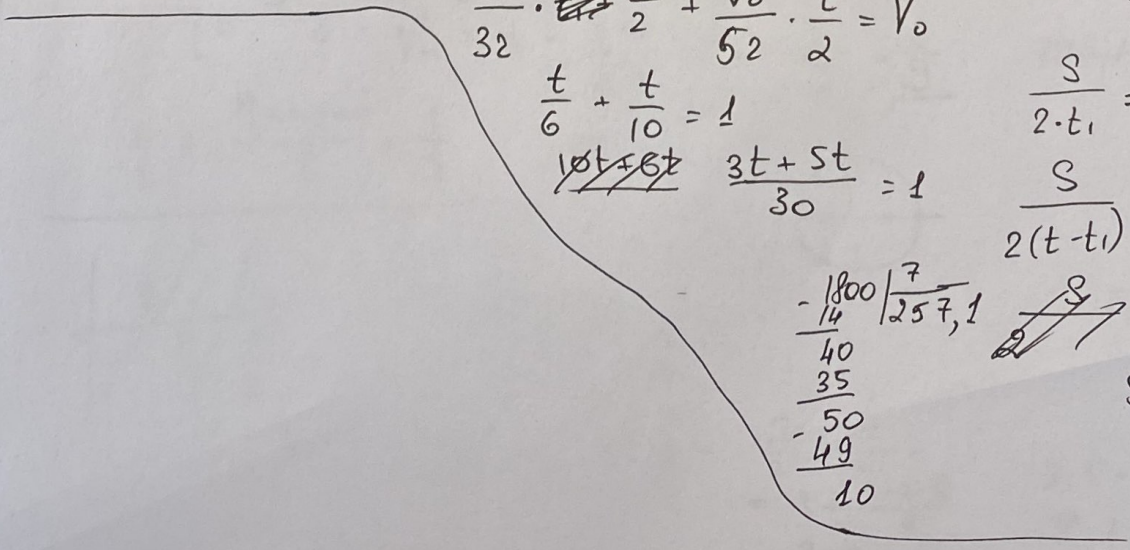 32 · 2 + 52 · 2 = V₀
t/6 + t/10 = 1
(3t + 5t)/30 = 1
S/(2·t₁) =
S/(2(t - t₁))
- 1800 | 7
14 | 257,1
40
35
- 50
49
10